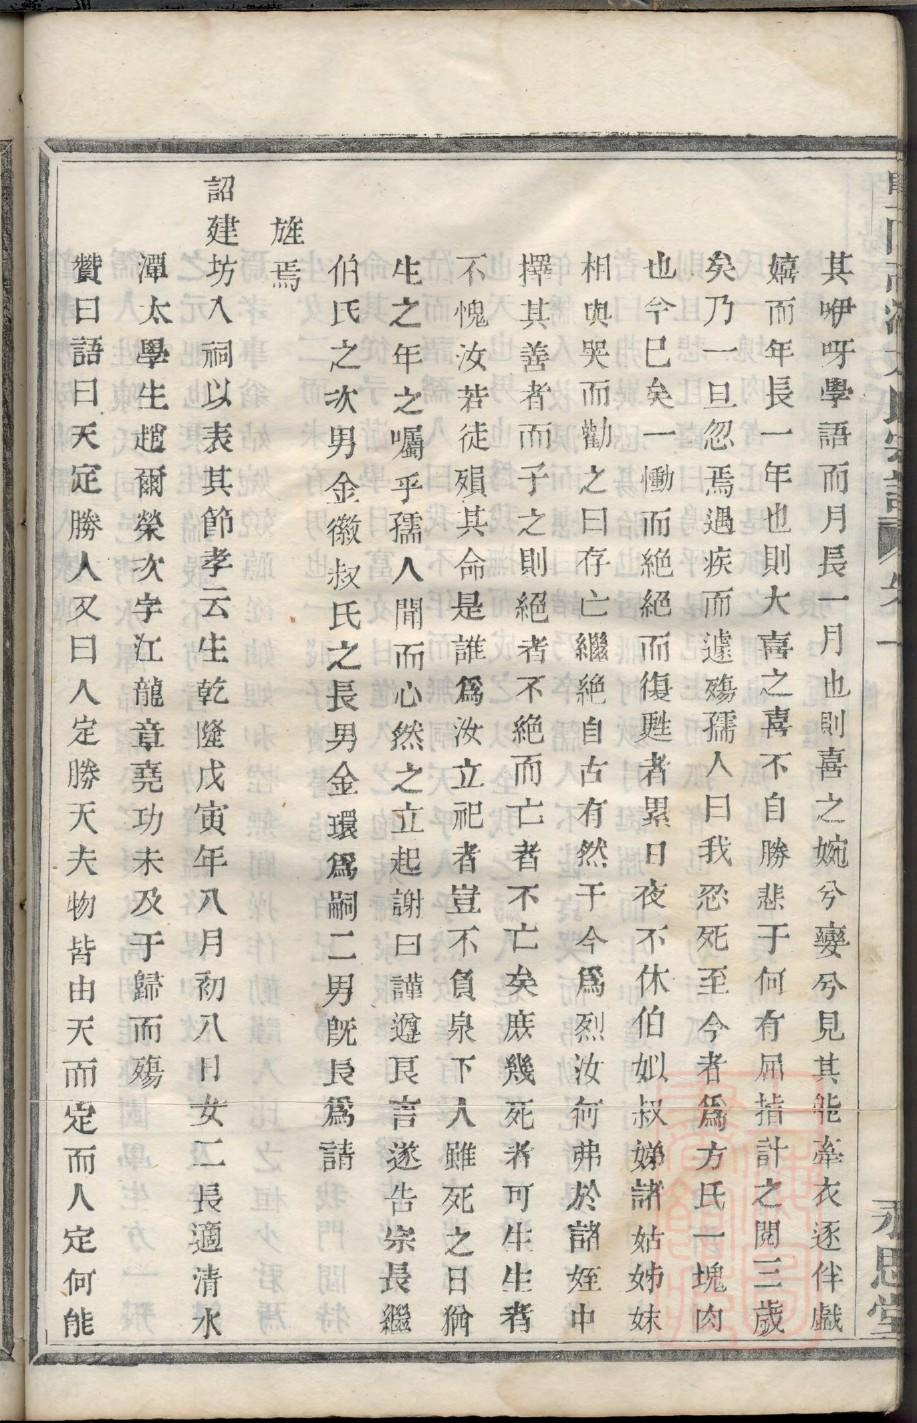 其咿呀學語而月長一月也則喜之婉兮孌兮見其能牽衣逐伴戲
嬉而年長一年也則大喜之喜不自勝悲于何有屈指計之閱三歲
矣乃一旦忽焉遇疾而遽殤孺人曰我忍死至今者爲方氏一塊肉
也今已矣一慟而絕絕而復甦者累日夜不休伯姒叔娣諸姑姊妹
相與哭而勸之曰存亡繼絕自古有然于今爲烈汝何弗於諸姪中
擇其善者而子之則絕者不絕而亡者不亡矣庶幾死者可生生者
不愧汝若徒殞其命是誰爲汝立祀者豈不負泉下人雖死之日猶
生之年之囑乎孺人聞而心然之立起謝曰謹遵良言遂告宗長繼
伯氏之次男金徽叔氏之長男金環爲嗣二男旣長爲請
旌焉
詔建坊入祠以表其節孝云生乾隆戊寅年八月初八日女二長適清水
潭太學生趙爾榮次字江龍章堯功未及于歸而殤
贊曰語曰天定勝人又曰人定勝天夫物皆由天而定而人定何能
永思堂